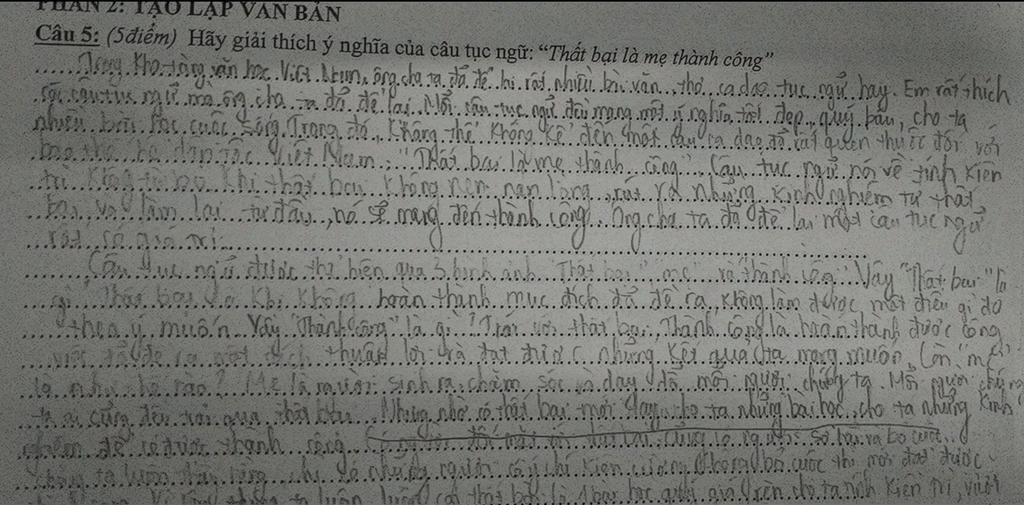 PHẦN 2: TẠO LẬP VĂN BẢN
Câu 5: (5điểm) Hãy giải thích ý nghĩa của câu tục ngữ: “Thất bại là mẹ thành công”
Trong kho tàng văn học Việt Nam, ông cha ta đã để lại rất nhiều bài văn, thơ, ca dao, tục ngữ hay. Em rất thích
câu tục ngữ mà ông cha ta đã để lại. Mỗi câu tục ngữ đều mang một ý nghĩa tốt đẹp, quý báu, cho ta
nhiều bài học cuộc sống. Trong đó, không thể không kể đến một câu ca dao đã rất quen thuộc đối với
dân tộc Việt Nam: "Thất bại là mẹ thành công". Câu tục ngữ nói về tính kiên
trì không từ bỏ khi thất bại không nên nản lòng, rút ra những kinh nghiệm từ thất
bại và làm lại từ đầu, nó sẽ mang đến thành công. Ông cha ta đã để lại một câu tục ngữ
rất có giá trị.
Câu tục ngữ được thể hiện qua 3 hình ảnh "Thất bại" "mẹ" và "thành công". Vậy "Thất bại" là
gì? Thất bại là khi không hoàn thành mục đích đã đề ra, không làm được một điều gì đó
theo ý muốn. Vậy "Thành công" là gì? Trái với thất bại, Thành công là hoàn thành được công
việc đã đề ra một cách thuận lợi và đạt được những kết quả mong muốn. Còn "mẹ"
là như thế nào? Mẹ là người sinh ra, chăm sóc và dạy dỗ mỗi người chúng ta. Mỗi người chúng
ta ai cũng đều trải qua thất bại. Nhưng nhờ có thất bại mới dạy cho ta những bài học, cho ta những kinh
nghiệm để có được thành công. sợ hãi và bỏ cuộc.
Chúng ta luôn thấy rằng chỉ có những người có ý chí kiên cường không bỏ cuộc thì mới đạt được
ta luôn luôn coi thất bại là 1 bài học quý giá rèn cho ta tính kiên trì, vượt